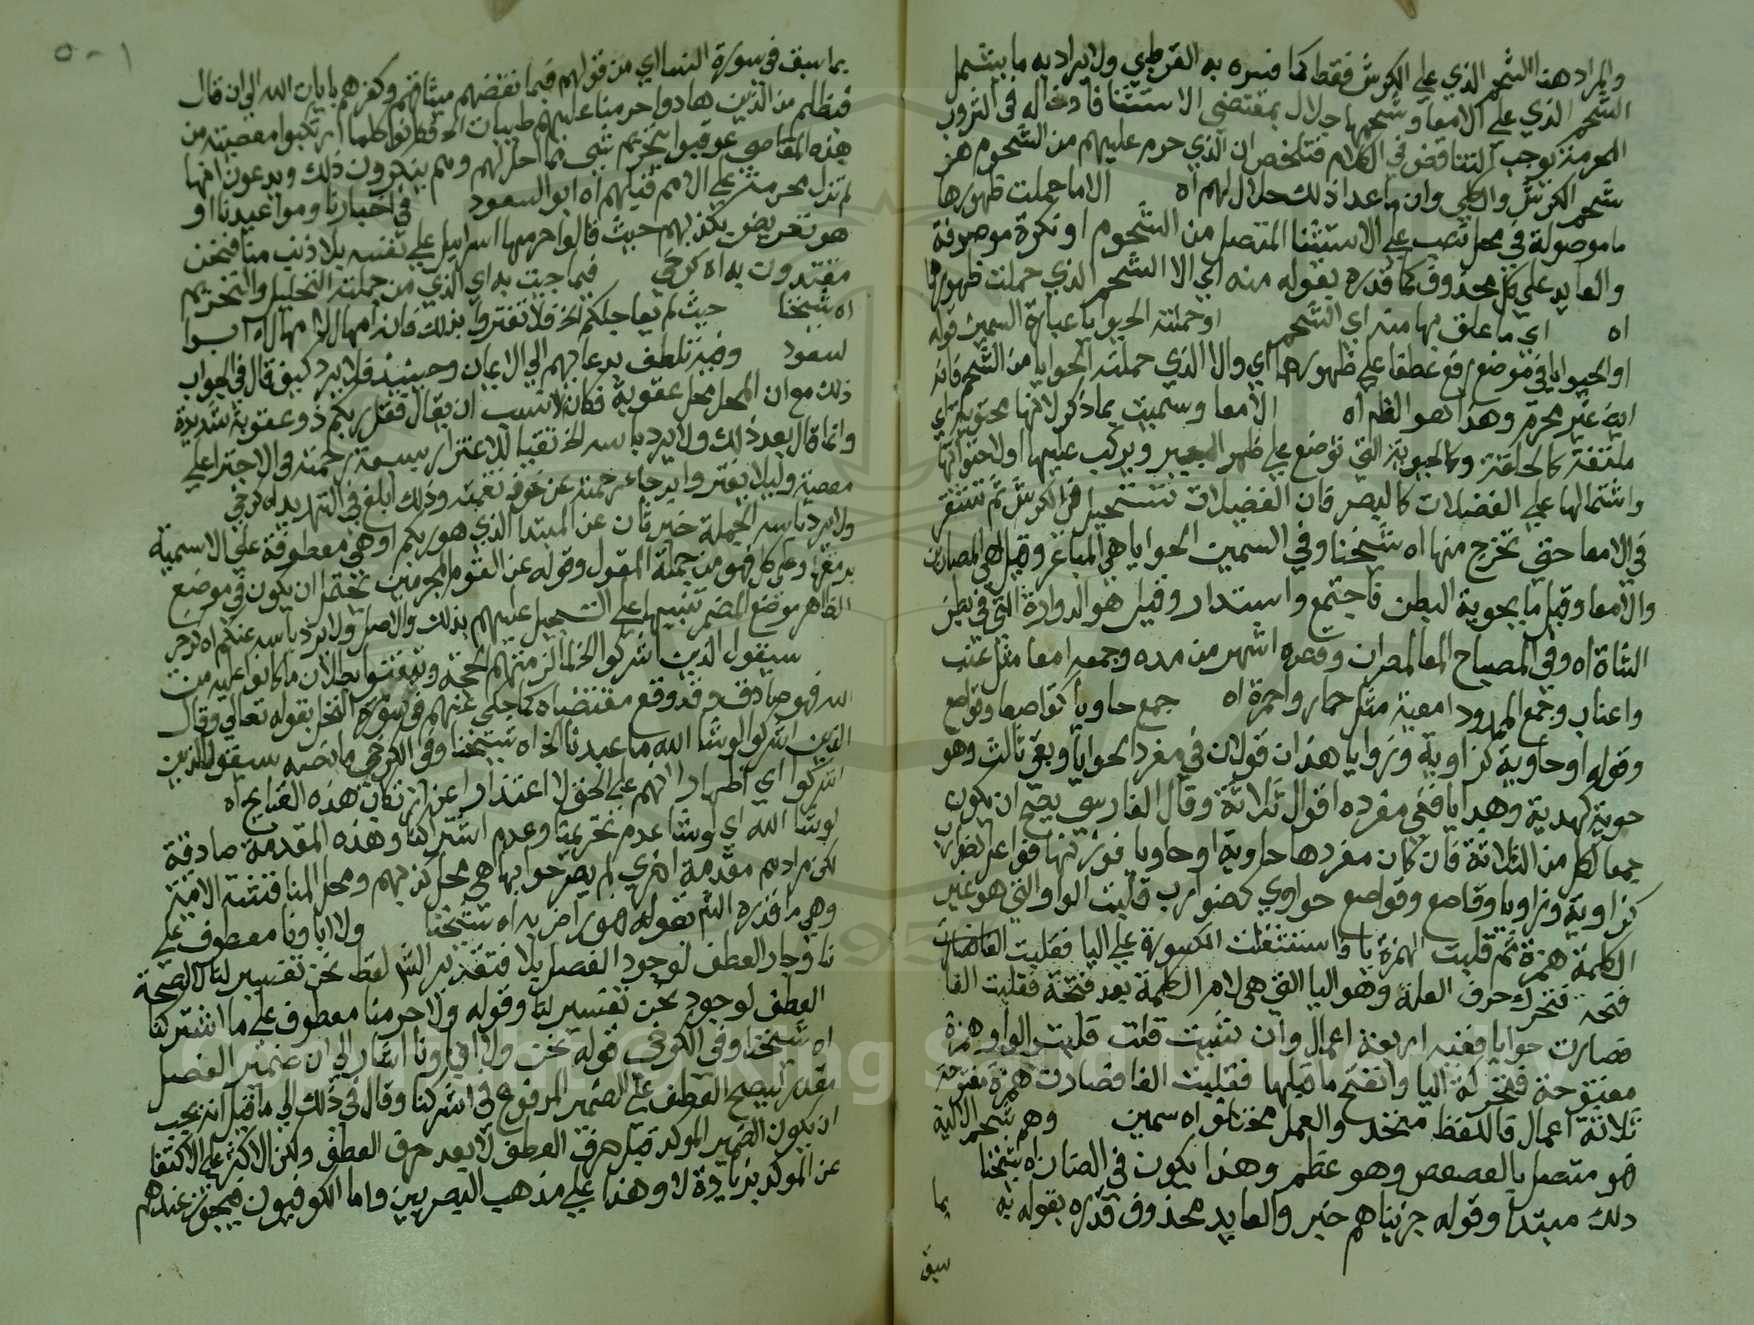 والمراد هنا الشحم الذي على الكرش فقط كما فسره به القرطبي ولا يراد به ما يشمل
الشحم الذي على الامعا وشحمها حلال بمقتضى الاستثنا فادخاله في الثروب
المحرمة يوجب التناقض في الكلام فتلخص ان الذي حرم عليهم من الشحوم هو
شحم الكرش والكلى وان ما عدا ذلك حلال لهم اه الا ما حملت ظهورها
ما موصولة في محل نصب على الاستثنا المتصل من الشحوم او نكرة موصوفة
والعايد على كل محذوف كما قدره بقوله منه اي الا الشحم الذي حملت ظهورها
اه اي ما علق بها منه اي الشحم او حملته الحوايا عبارة السمين قوله
او الحوايا في موضع رفع عطفا على ظهورهما اي والا الذي حملته الحوايا من الشحم فانه
ايضا غير محرم وهذا هو الظاهر اه الامعا وسميت بما ذكر لانها محتوية اي
ملتفة كالحلقة وكالحوية التي توضع على ظهر البعير ويركب عليها او لاحتوائها
واشتمالها على الفضلات كالبصر فان الفضلات تستحيل في الكرش ثم تستقر
في الامعا حتى تخرج منها اه شيخنا وفي السمين الحوايا هي المباعر وقيل هي المصارين
والامعا وقيل ما يحوية البطن فاجتمع واستدار وقيل هو الدوارة التي في بطن
الشاة اه وفي المصباح المعا المصران وقصره اشهر من مده وجمعه امعا مثل عنب
واعناب وجمع الممدود امعية مثل حمار واحمرة اه جمع حاويا كقاصعا وقواصع
وقوله او حاوية كزاوية وزوايا هذان قولان في مفرد الحوايا وبقي ثالث وهو
حوية كهدية وهدايا ففي مفرده اقوال ثلاثة وقال الفارسي يصح ان يكون
جمعا لكل من الثلاثة فان كان مفردها حاوية او حاويا فوزنها فواعل كضوارب
كزاوية وزوايا وقاصع وقواصع حواوي كضوارب قلبت الواو التي هو عين
الكلمة همزة ثم قلبت الهمزة يا فاستثقلت الكسرة على اليا فقلبت
فتحة فتحرك حرف العلة وهو اليا التي هي لام الكلمة بعد فتحة فقلبت الفا
فصارت حوايا ففيه اربعة اعمال وان شيت قلت قلبت الواو همزة
مفتوحة فتحركة اليا وانفتح ما قبلها فقلبت الفا فصارت همزة مفتوحة
ثلاثة اعمال فاللفظ متحد والعمل مختلف اه سمين وهو شحم الالية
هو متصل بالعصعص وهو عظم وهذا يكون في الضان اه شيخنا
ذلك مبتدا وقوله جزيناهم خبر والعايد محذوف قدره بقوله به بما
سبق
٥٠١
بما سبق في سورة النسا اي من قولهم فبما نقضهم ميثاقهم وكفرهم بايات الله الى ان قال
فبظلم من الذين هادوا حرمنا عليهم طيبات الخ فكانوا كلما ارتكبوا معصية من
هذه المعاصي عوقبوا بتحريم شي مما احل لهم وهم ينكرون ذلك ويدعون انها
لم تزل محرمة على الامم قبلهم اه ابو السعود في اخبارنا ومواعيدنا او
هو تعريض بكذبهم حيث قالوا حرمها اسراييل على نفسه بلا ذنب منا فنحن
مقتدون به اه كرخي فيما جيت به اي الذي من جملته التحليل والتحريم
اه شيخنا حيث لم يعاجلكم الخ فلا تغتروا بذلك فانه امهال لا اهمال اه ابوا
لسعود وفيه تلطف بدعايهم الى الايمان وحينيذ فلا يرد كيف قال في الجواب
ذلك مع ان المحل محل عقوبة فكان الانسب ان يقال فقل ربكم ذو عقوبة شديدة
وانما قال بعد ذلك ولا يرد باسه الخ نفيا للاغترار بسعة رحمته في الاجترا على
معصية وليلا يغتروا برجاء رحمته عن خوف نقمته وذلك ابلغ في التهديد اه كرخي
ولا يرد باسه الجملة خبر ثان عن المبتدا الذي هو ربكم او هي معطوفة على الاسمية
وعلى كل فهو من جملة المقول وقوله عن القوم المجرمين يحتمل ان يكون في موضع
الظاهر موضع المضمر تنبيها على التسجيل عليهم بذلك والاصل ولا يرد باسه عنكم اه كرخي
سيقول الذين اشركوا الخ لما الزمتهم الحجة وتيقنوا بطلان ما كانوا عليه من
الله فهو صادق وقد وقع مقتضاه كما حكى عنهم في سورة النحل بقوله تعالى وقال
الذين اشركوا لو شا الله ما عبدنا الخ اه شيخنا وفي الكرخي ما نصه سيقول الذين
اشركوا اي اظهارا انهم على الحق لا اعتذارا عن ارتكاب هذه القبايح اه
لو شا الله اي لو شا عدم تحريمنا وعدم اشراكنا وهذه المقدمة صادقة
لكن مرادهم مقدمة اخرى لم يصرحوا بها هي محل كذبهم ومحل المناقشة الاتية
وهي ما قدره الشم بقوله فهو راض به اه شيخنا ولا اباونا معطوف على
نا وجاز العطف لوجود الفصل بلا فتقدير الش لفظ نحن تفسير لنا لا لصحة
العطف لوجود نحن تفسير لنا وقوله ولا حرمنا معطوف على ما اشركنا
اه شيخنا وفي الكرخي قوله نحن ولا اباونا اشار الى ان ضمير الفصل
مقدر ليصح العطف على الضمير المرفوع في اشركنا وقال في ذلك الى ما قيل انه يجب
ان يكون الضمير الموكد قبل حرف العطف لا بعد حرف العطف ولكن الاكثر على الاكتفا
عن الموكد بزيادة لا وهذا على مذهب البصريين واما الكوفيون فيجوز عندهم